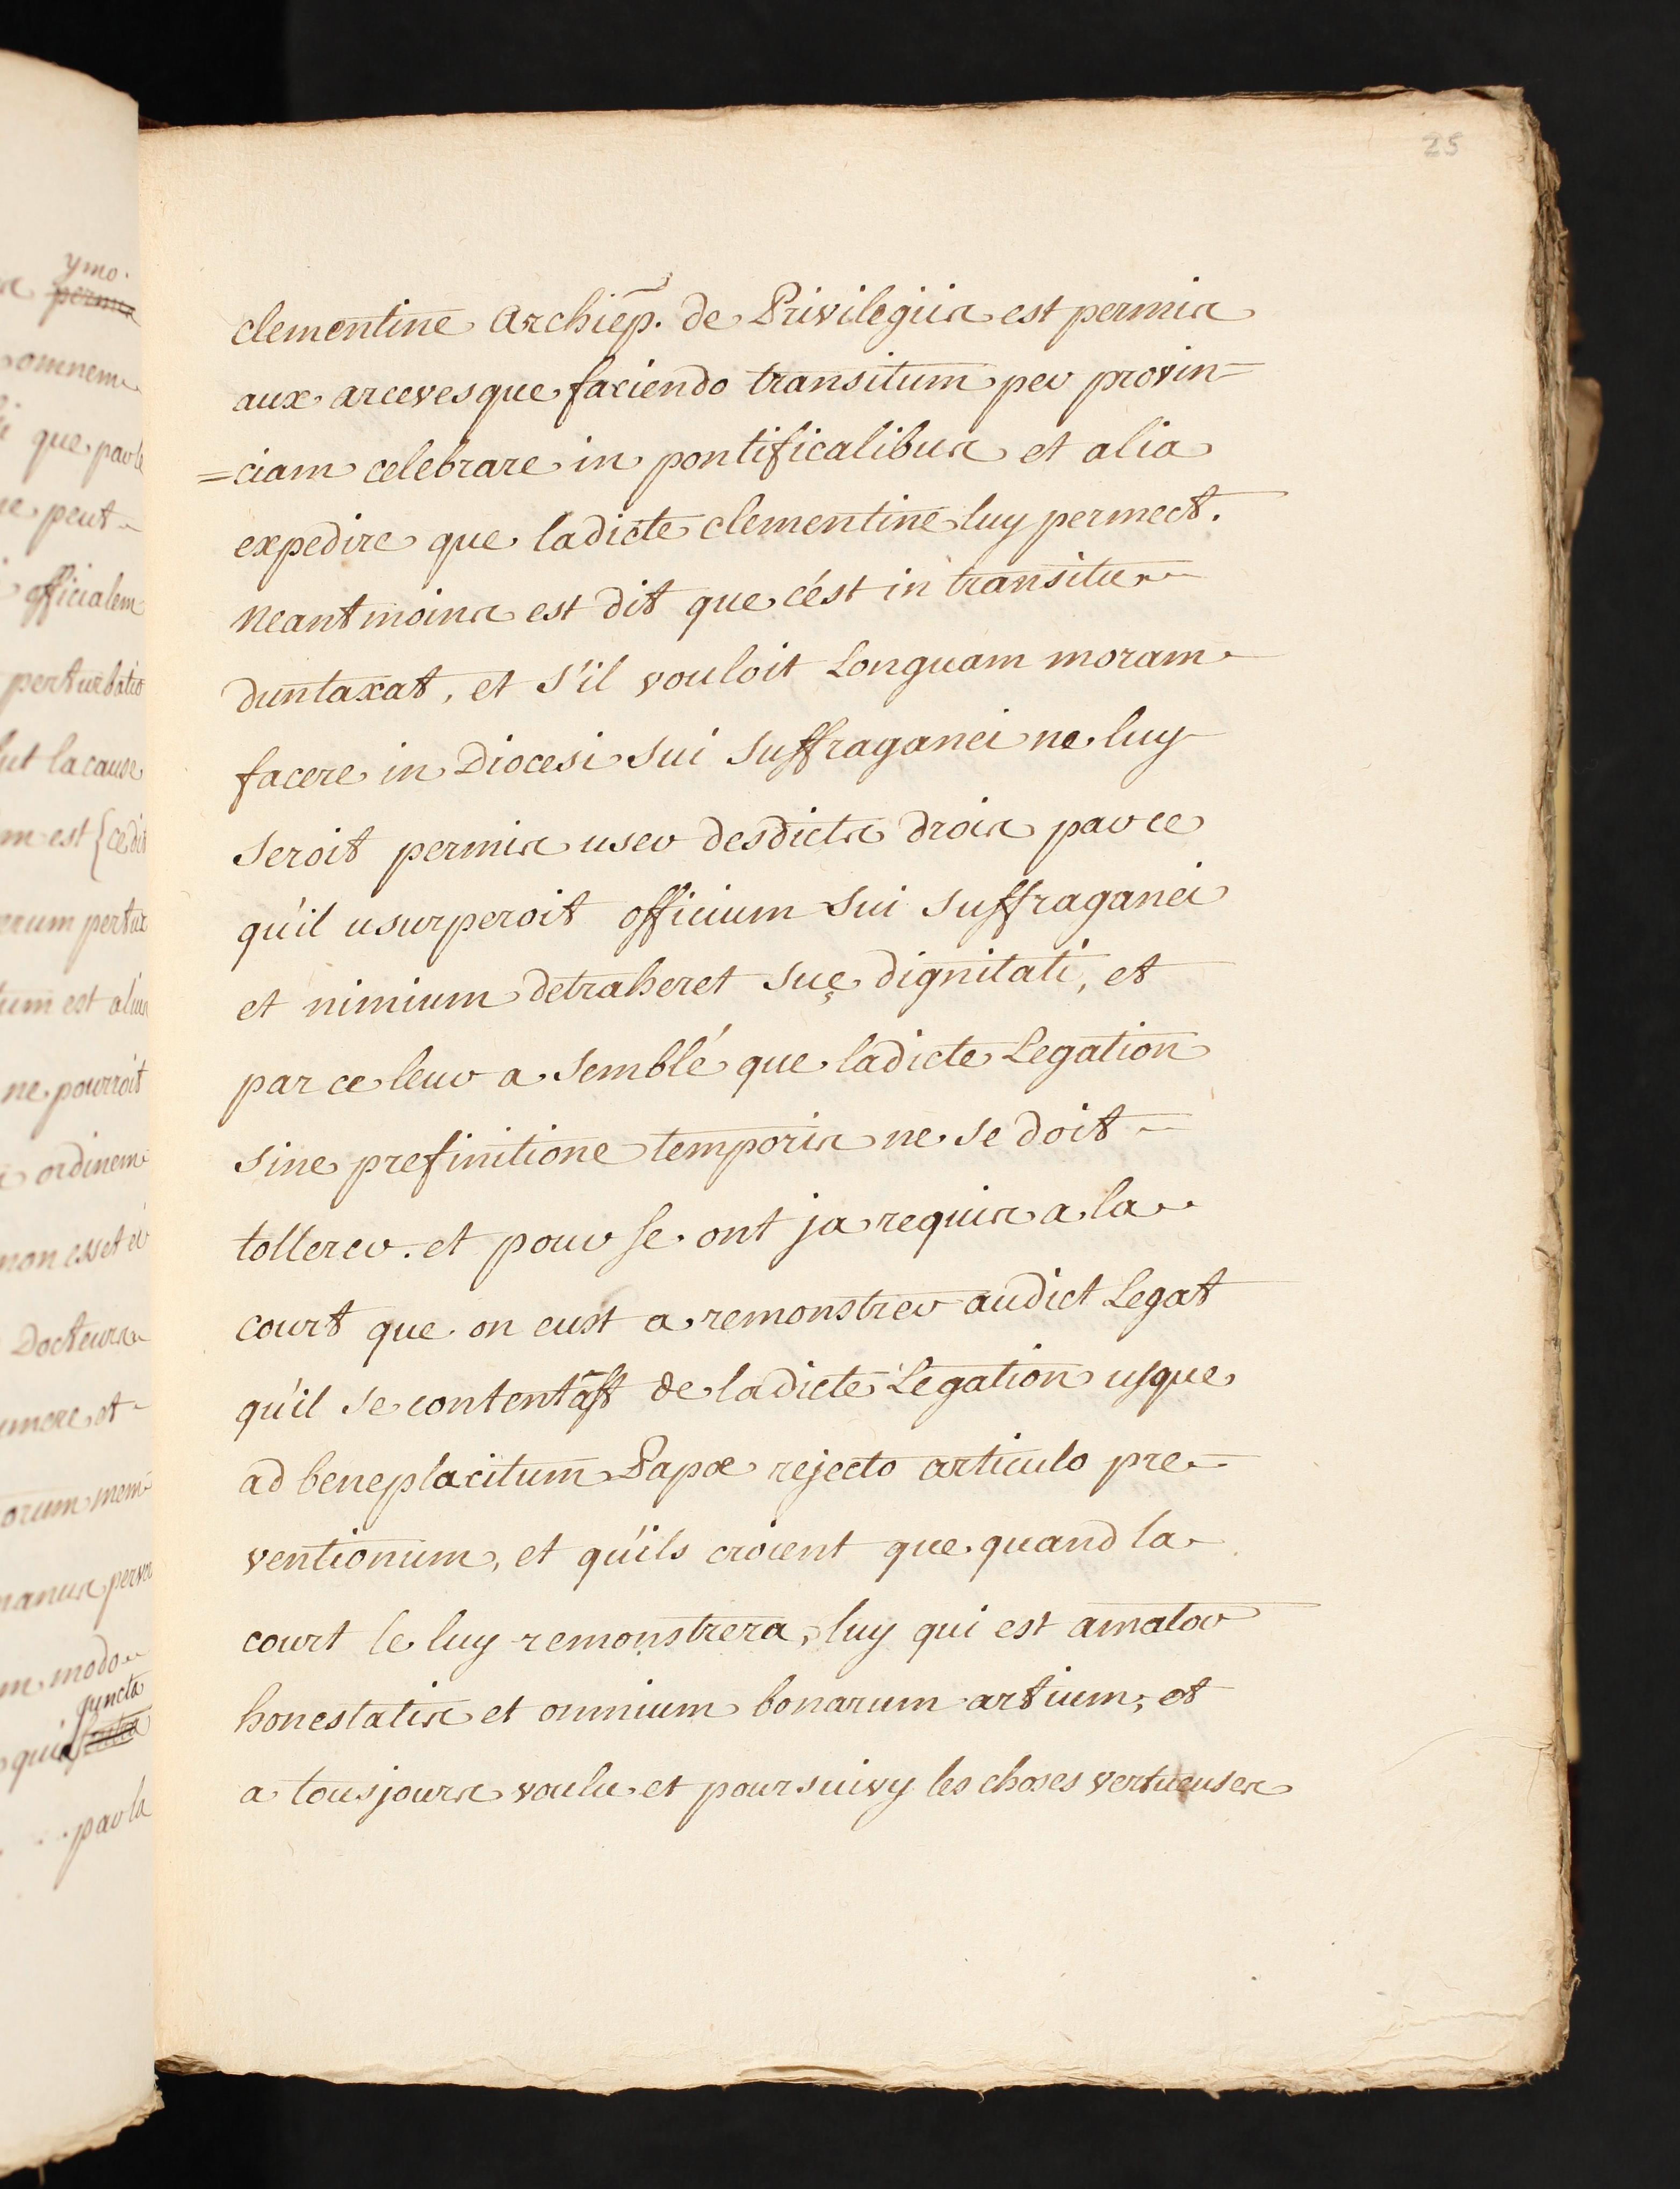 25
clementine Archiep̄. de Privilegiis est permis
aux arcevesque faciendo transitum per provin=
=ciam celebrare in pontificalibus et alia
expedire que ladicte clementine luy permect.
Neantmoins est dit que c'est in transitu
duntaxat, et s'il vouloit Longuam moram
facere in Diocesi sui suffraganei ne luy
seroit permis user desdicts drois par ce
qu'il usurperoit officium sui suffraganei
et nimium detraheret suę dignitati, et
par ce leur a semblé que ladicte Legation
sine prefinitione temporis ne se doit
tollerer. et pour se ont ja requis a la
court que on eust a remonstrer audict Legat
qu'il se contentast de ladicte Legation usque
ad beneplacitum Papæ rejecto articulo pre-
ventionum, et qu'ils croient que quand la
court le luy remonstrera, luy qui est amator
honestatis et omnium bonarum artium, et
a tousjours voulu et poursuivy les choses vertueuses